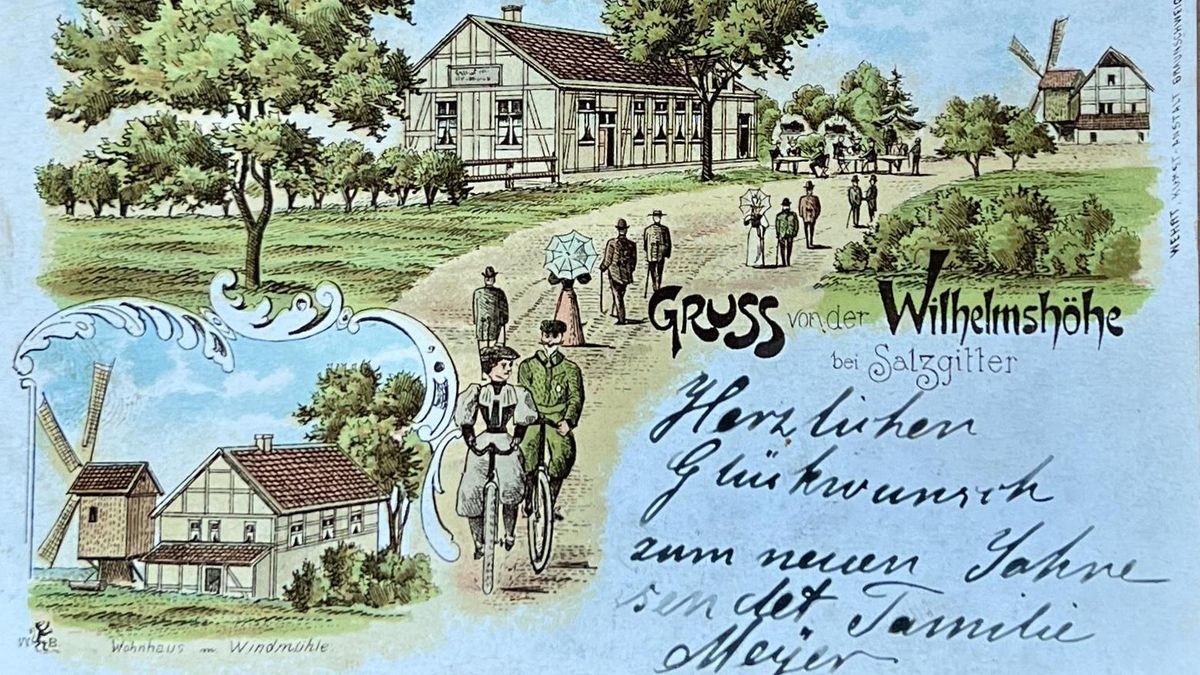 WEHRT, KUNST-ANSTALT BRAUNSCHWEIG
GRUSS von der Wilhelmshöhe
bei Salzgitter
Herzlichen
Glückwunsch
zum neuen Jahre
sendet Familie
Meyer
W B
Wohnhaus m. Windmühle